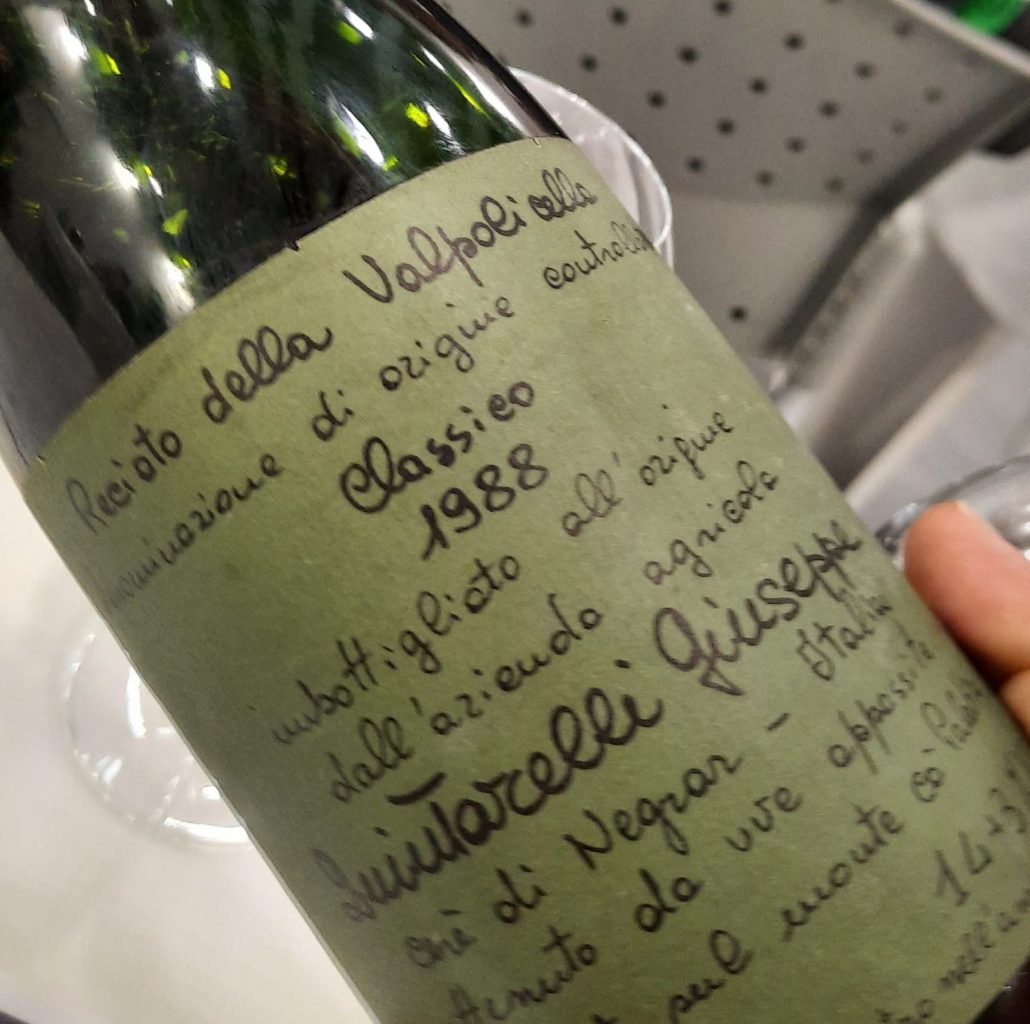 Recioto della Valpolicella
nominazione di origine controllat
Classico
1988
imbottigliato all'origine
dall'azienda agricola
Quintarelli Giuseppe
cerè di Negrar - Italia
ttenuto da uve appassite
sul monte cà Paletta
14+3